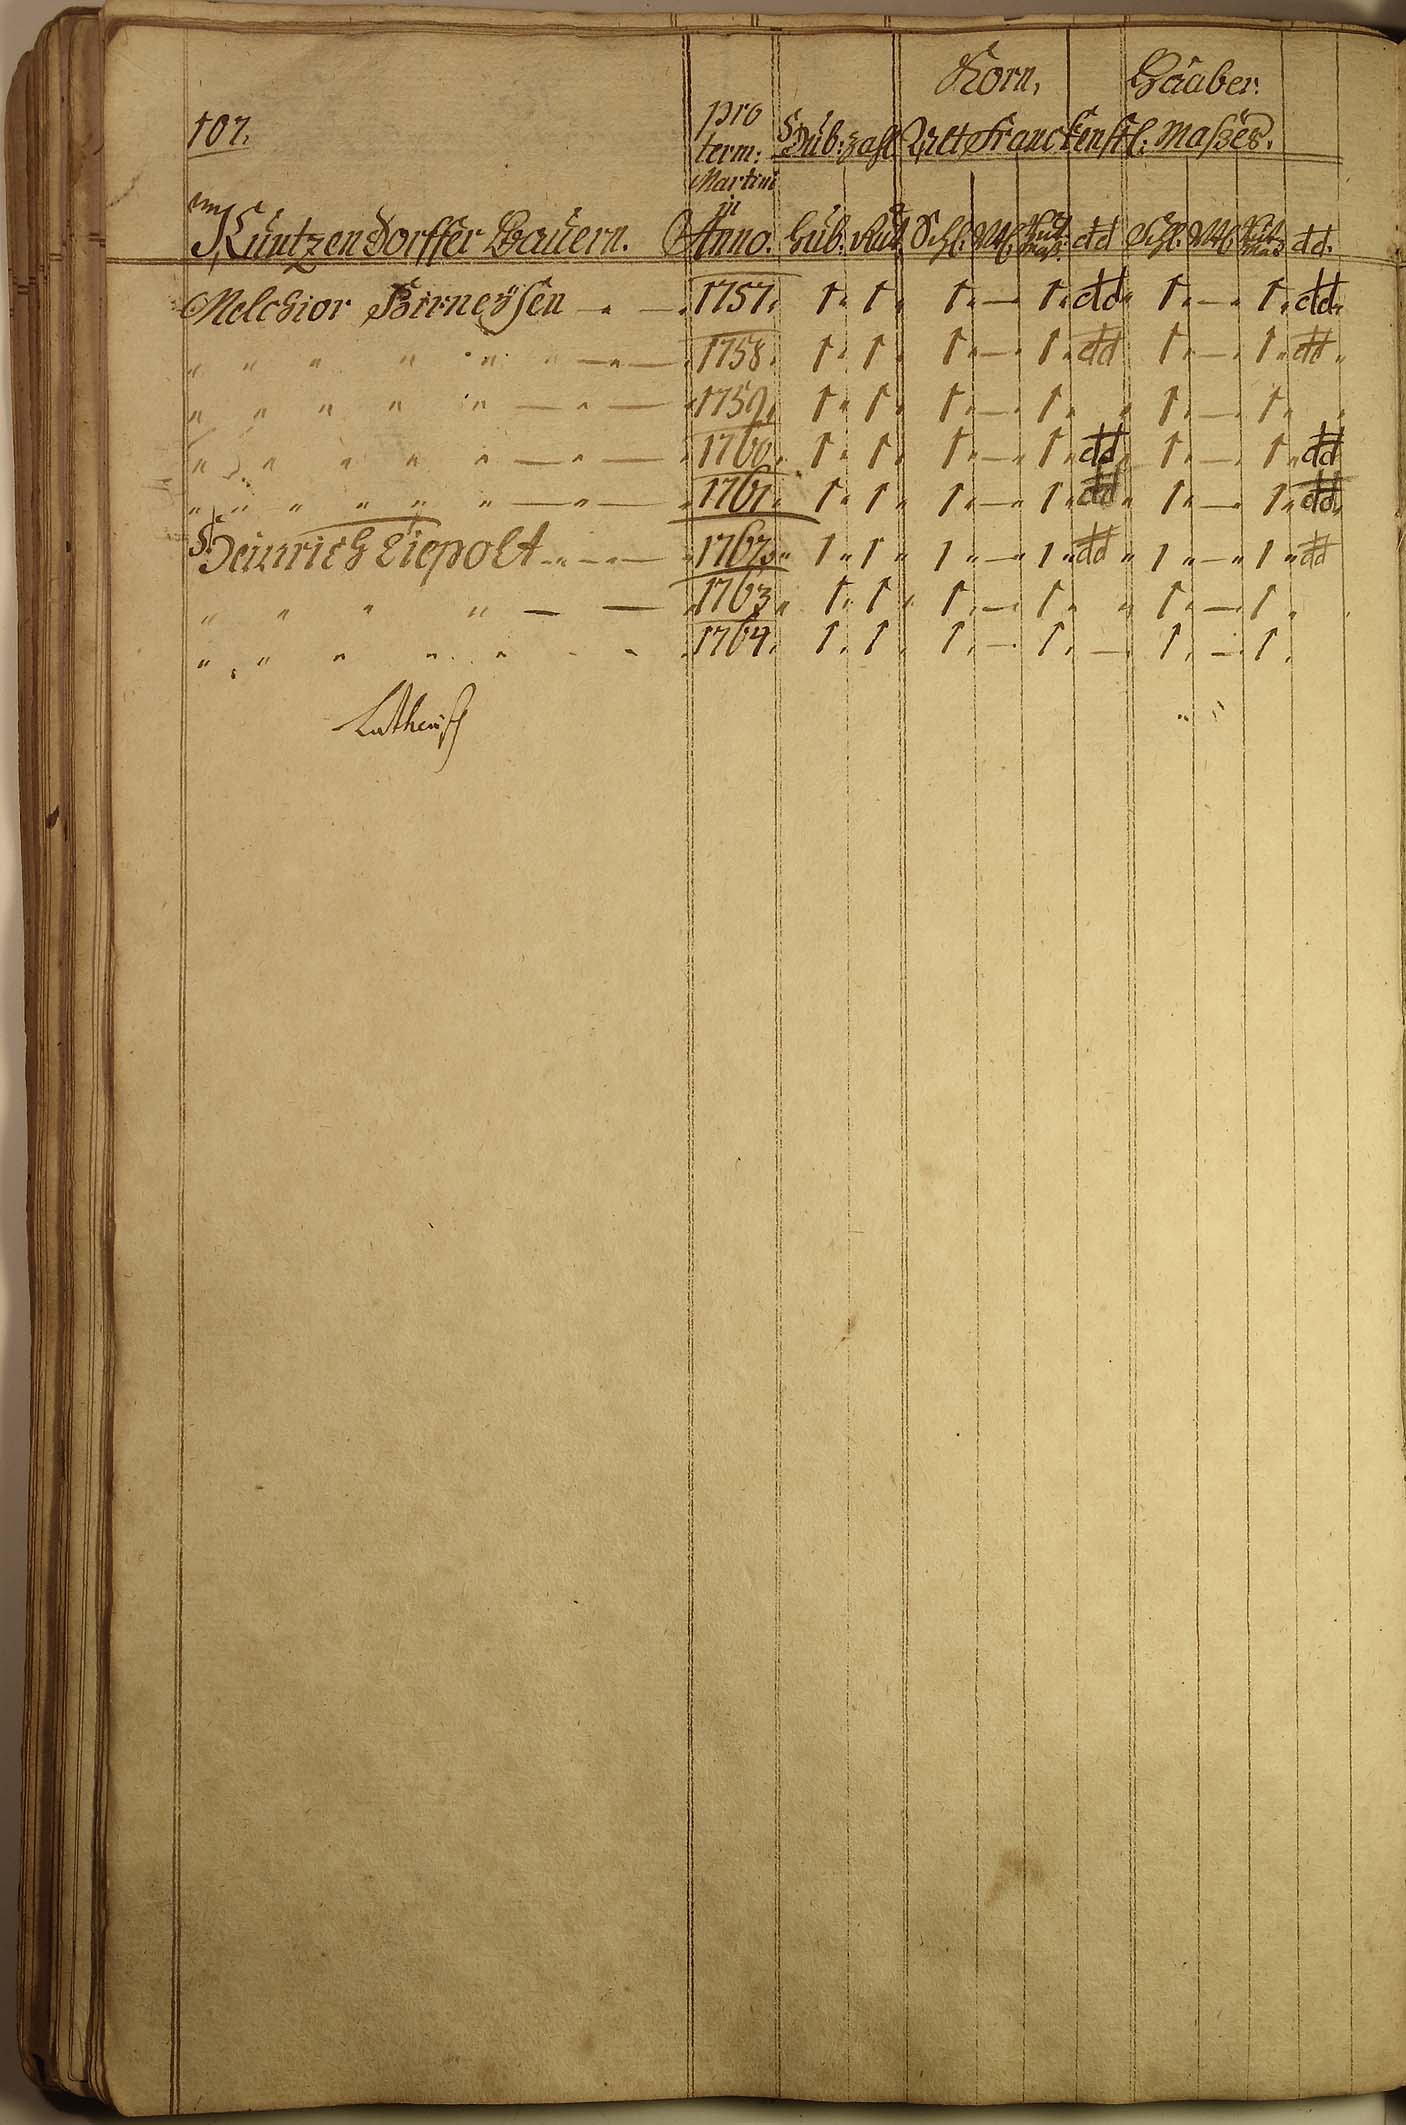 Korn, Haaber.
107. pro
term: Hub: zahl Altt Franckenstl: Maßes.
Martini
in
Kuntzendorffer Bauern. Anno. Hub: Rut Schl: Mtl: dd Schl: Mtl: dd.
Melchior Birneysen - " - " 1757. 1. 1. 1. — 1. dd " 1. — 1. dd.
" " " " " " — " — " 1758. 1. 1. 1. — 1. dd 1. — 1. dd "
" " " " " — " — " 1759. 1. 1. 1. — 1. " 1. — 1. "
" " " " " — " — " 1760. 1. 1. 1. — " 1. dd " 1. — 1. dd
" " " " " " — " — " 1761. 1. 1. 1. — " 1. dd " 1. — " 1. dd.
Heinrich Liepolt - " - — " 1762. " 1 " 1 " 1 " — " 1 " dd " 1 " — " 1 " dd
" " " " — — " 1763 " 1. 1. " 1. — 1. " 1. — 1.
" " " " " - - . 1764. 1. 1. 1. — 1. — 1. — 1.